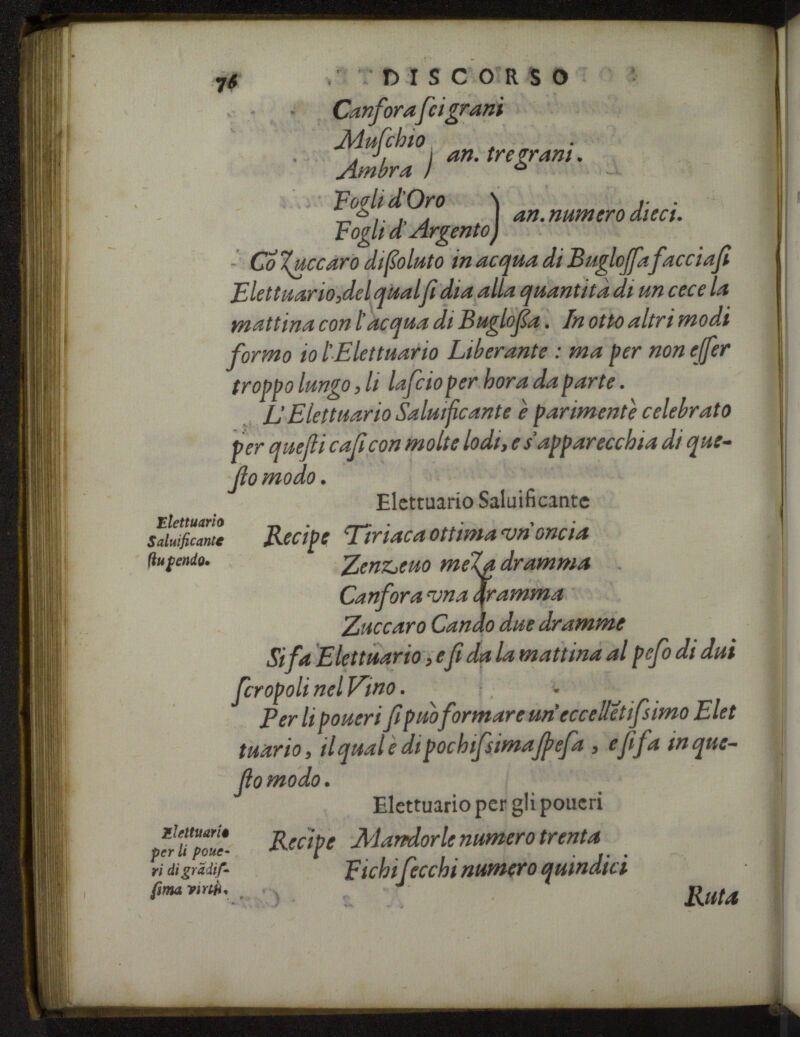 76 DISCORSO
Canfora ſei grani
Muſchio
Ambra } an. tre grani.
Fogli d'Oro
Fogli d'Argento } an. numero dieci.
Cõ Zuccaro dißoluto in acqua di Bugloſſa facciaſi
Elettuario, del qual ſi dia alla quantità di un cece la
mattina con l'acqua di Bugloßa. In otto altri modi
formo io l'Elettuario Liberante : ma per non eſſer
troppo lungo, li laſcio per hora da parte.
L'Elettuario Saluificante è parimentè celebrato
per queſti caſi con molte lodi, e s'apparecchia di que-
ſto modo.
Elettuario Saluificante
Elettuario
Saluificante
ſtupendo.
Recipe Tiriaca ottima vn'oncia
Zenzeuo meza dramma
Canfora vna dramma
Zuccaro Cando due dramme
Si fa Elettuario, e ſi da la mattina al peſo di dui
ſcropoli nel Vino.
Per li poueri ſi può formare un'eccellẽtiſsimo Elet
tuario, il qual è di pochiſsima ſpeſa, e ſi fa in que-
ſto modo.
Elettuario per gli poueri
Elettuario
per li poue-
ri di grãdiſ-
ſima virtù.
Recipe Mandorle numero trenta
Fichi ſecchi numero quindici
Ruta